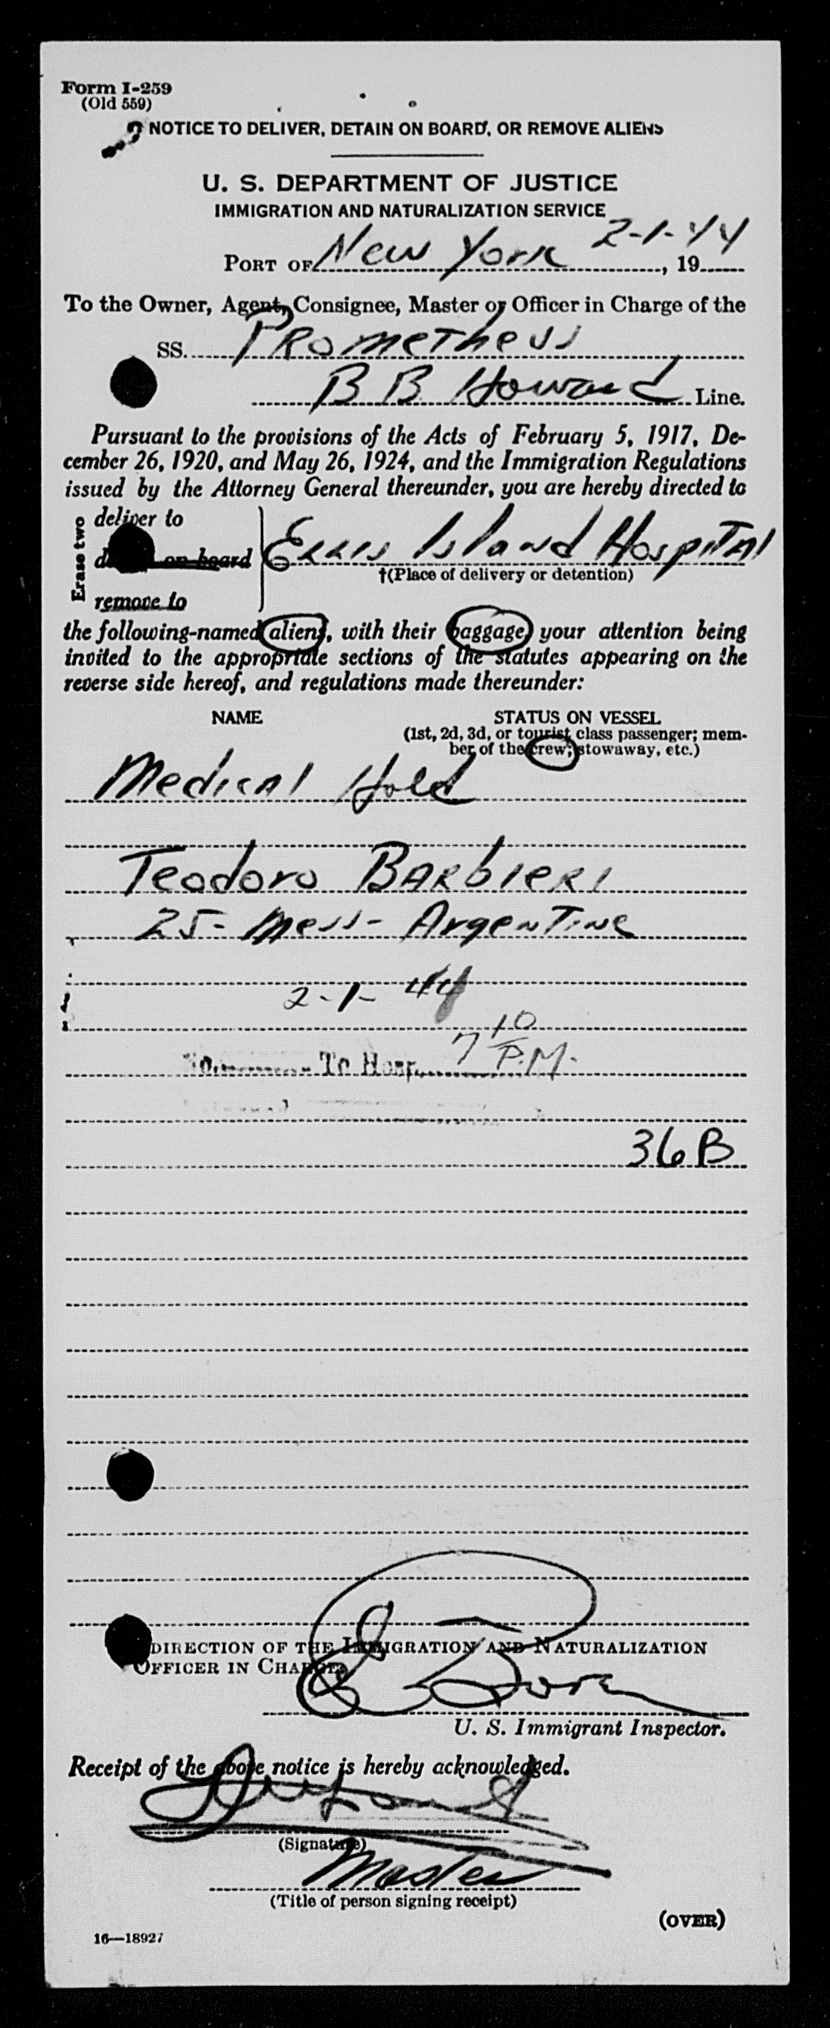 Form I-259
(Old 559)
NOTICE TO DELIVER, DETAIN ON BOARD, OR REMOVE ALIENS
U. S. DEPARTMENT OF JUSTICE
IMMIGRATION AND NATURALIZATION SERVICE
PORT OF New York 2-1-44, 19
To the Owner, Agent, Consignee, Master or Officer in Charge of the
SS. Prometheus
B B Howard Line.
Pursuant to the provisions of the Acts of February 5, 1917, De-
cember 26, 1920, and May 26, 1924, and the Immigration Regulations
issued by the Attorney General thereunder, you are hereby directed to
Erase two
deliver to
on board
remove to
Ellis Island Hospital
†(Place of delivery or detention)
the following-named aliens, with their baggage, your attention being
invited to the appropriate sections of the statutes appearing on the
reverse side hereof, and regulations made thereunder:
NAME STATUS ON VESSEL
(1st, 2d, 3d, or tourist class passenger; mem-
ber of the crew; stowaway, etc.)
Medical Hold
Teodoro Barbieri
25- Mess- Argentine
2-1-44
To Hosp. 7 10 P.M.
36B
DIRECTION OF THE IMMIGRATION AND NATURALIZATION
OFFICER IN CHARGE:
U. S. Immigrant Inspector.
Receipt of the above notice is hereby acknowledged.
(Signature)
Master
(Title of person signing receipt)
(OVER)
16—18927